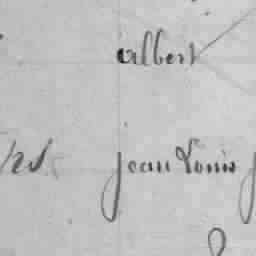 albert
jean Louis